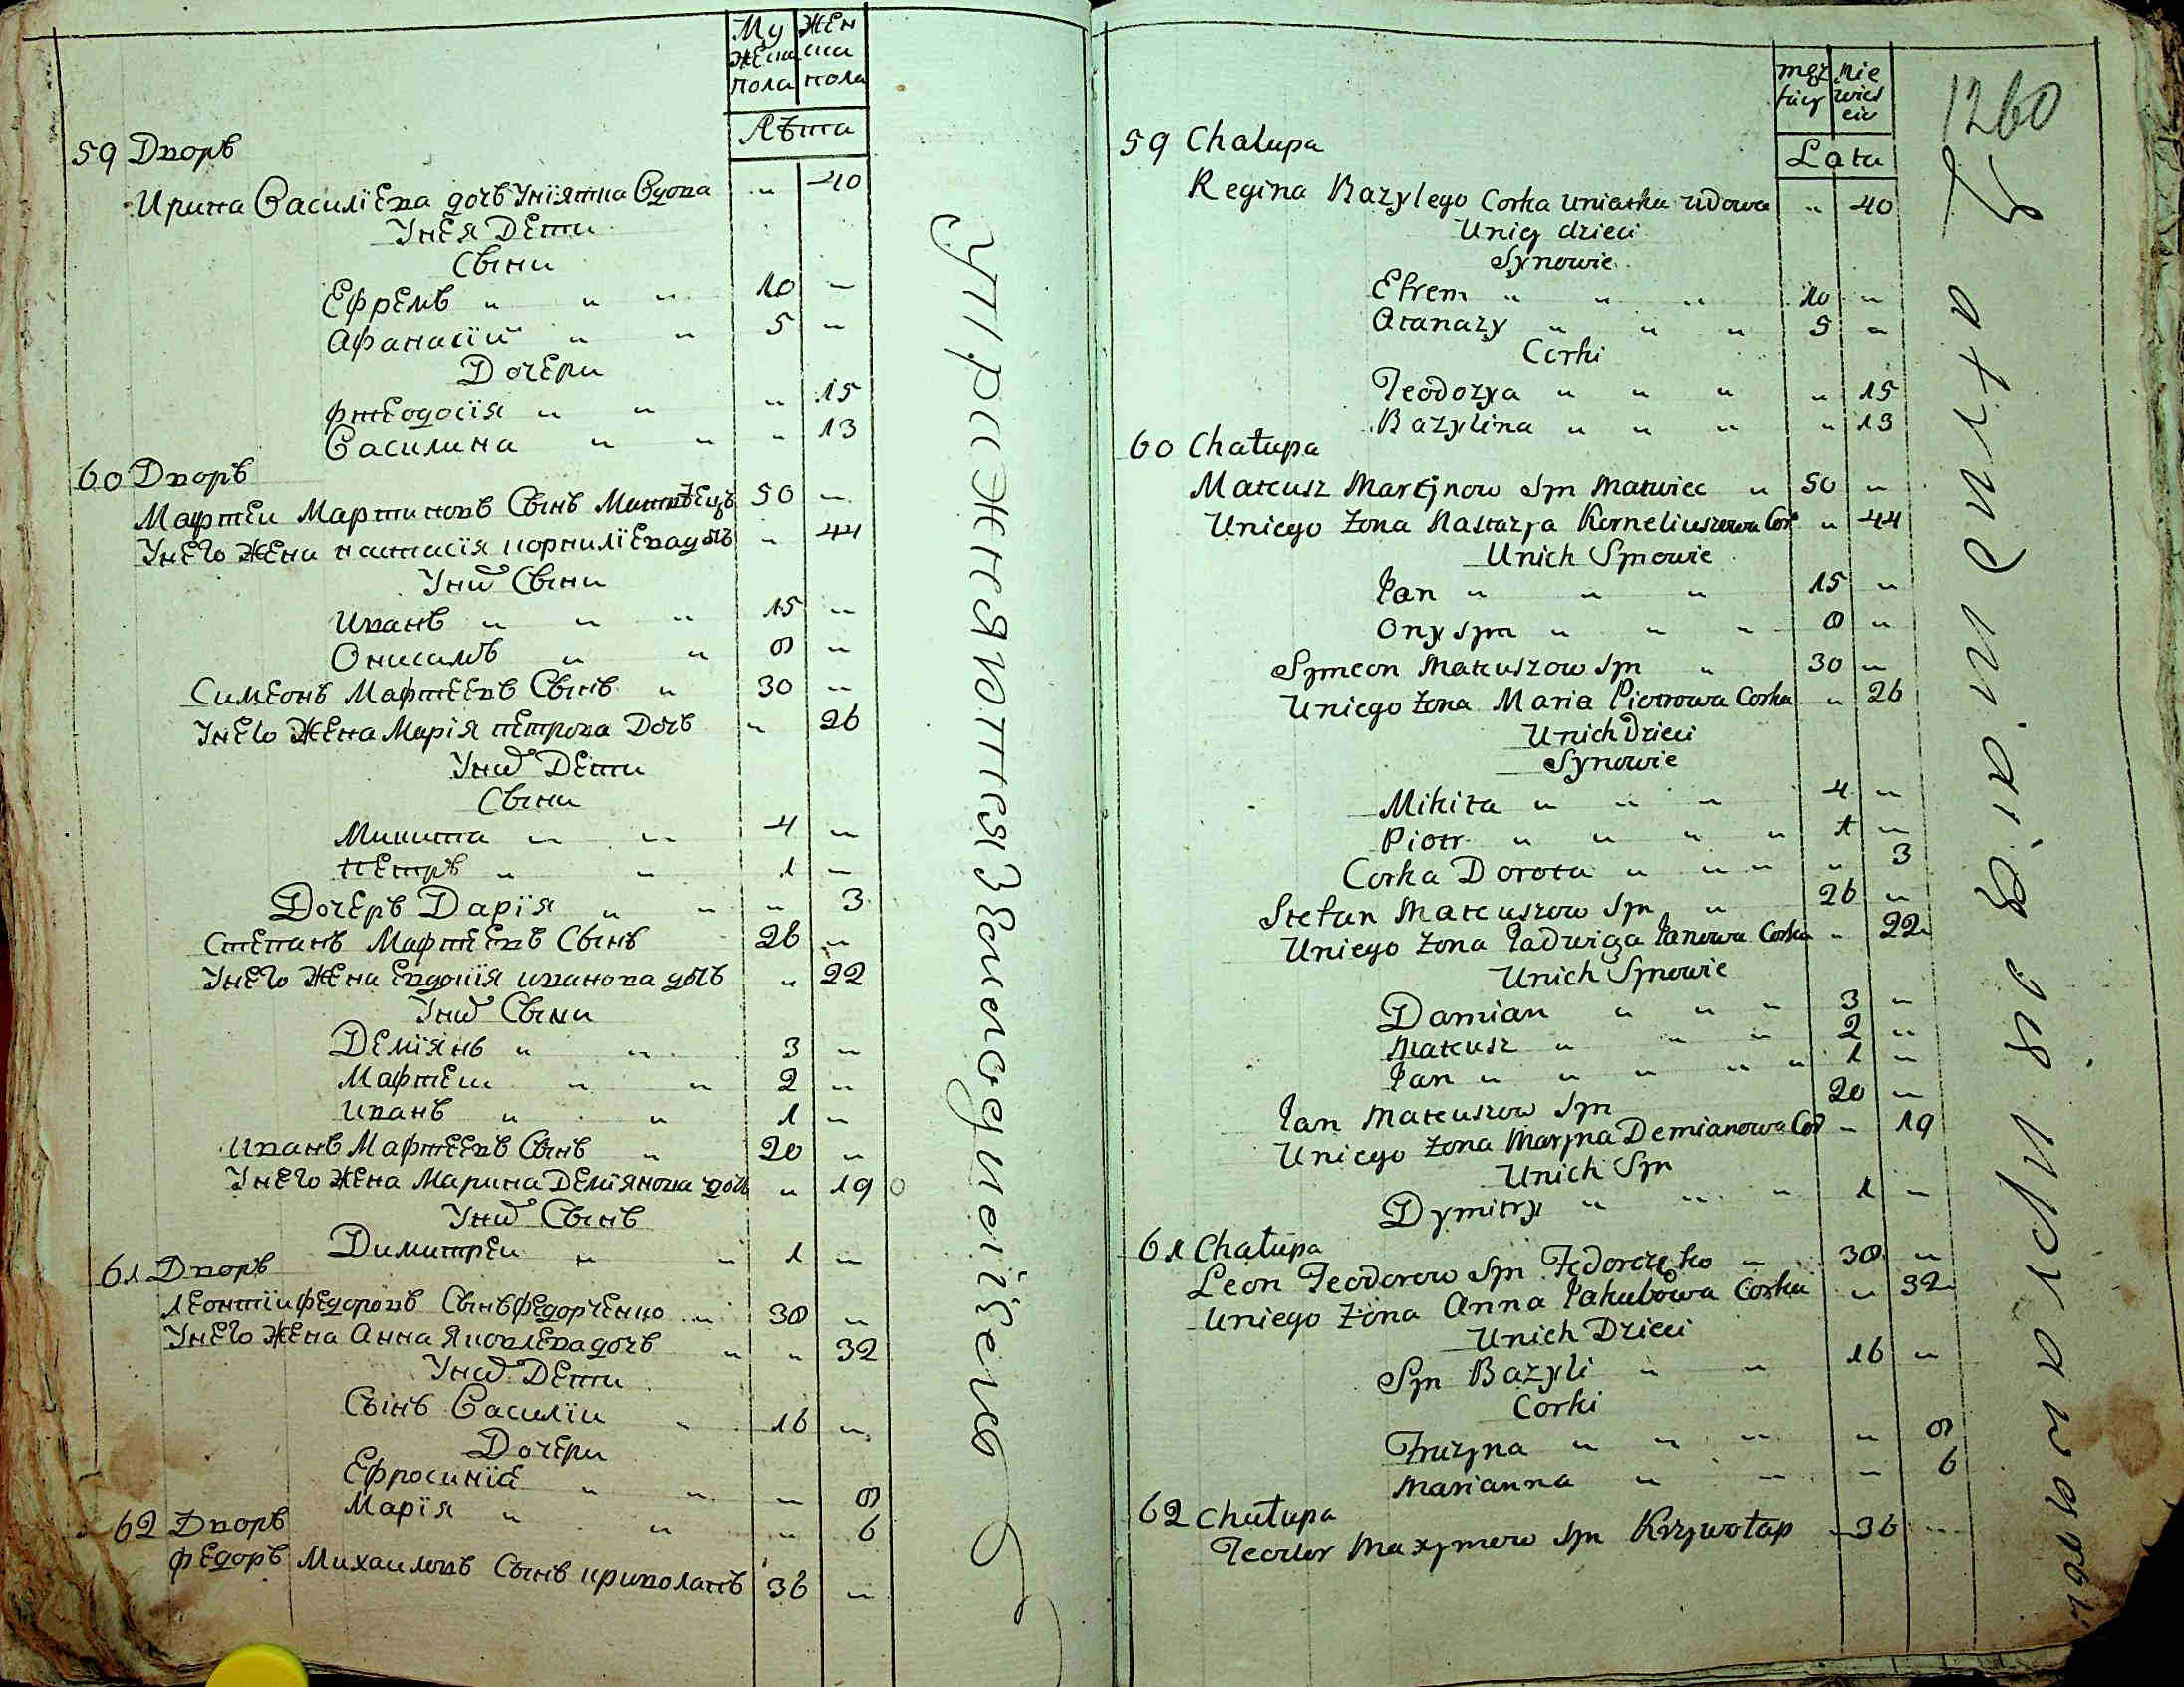 Му
жеска
пола
Жен
ска
пола
Лѣта
59 Дворъ
Ирина Василіева дочъ Уніятка Вдова „ 40
У нея Дети
Сыни
Ефремъ „ „ „ 10 „
Афанасій „ „ 5 „
Дочери
Фтеодосія „ „ „ 15
Василина „ „ „ 13
60 Дворъ
Мафтеи Мартиновъ Сынъ 50 „
У него Жена настасія корниліева дочъ „ 44
У них Сыни
Иванъ „ „ „ 15 „
Онисамъ „ „ 8 „
Симеонъ Мафтеевъ Сынъ „ 30 „
У него Жена Марія петрова Дочъ „ 26
У них Дети
Сыни
Микита „ „ 4 „
петръ „ „ 1 „
Дочеръ Дарія „ „ „ 3
Степанъ Мафтеевъ Сынъ 26 „
У него Жена Евдокія иванова дочъ „ 22
У них Сыни
Деміянъ „ „ 3 „
Мафтеи „ „ 2 „
иванъ „ „ 1 „
иванъ Мафтеевъ Сынъ „ 20 „
У него Жена Марина Деміянова дочъ „ 19
У них Сынъ
Димитреи „ „ 1 „
61 Дворъ
леонтіи федоровъ Сынъ федорченко „ 38 „
У него Жена Анна яковлева дочъ „ „ 32
У них Дети
Сынъ Василіи „ 16 „
Дочери
Ефросинія „ „ „ 8
Марія „ „ „ 6
62 Дворъ
федоръ Михаиловъ Сынъ криволапъ 36 „
упражняются в землодѣліем
męz
kiey
nie
wies
ciey
Lata
1260
59 Chalupa
Regina Bazylego Corka uniatka wdowa „ 40
U niey dzieci
Synowie
Efrem „ „ „ 10 „
Atanazy „ „ „ 5 „
Corki
Teodozya „ „ „ „ 15
Bazylina „ „ „ „ 13
60 Chałupa
Mateusz Martynow Syn Matwiec „ 50 „
U niego Zona Nastazya Korneliuszowa Cor „ 44
U nich Synowie
Jan „ „ „ 15 „
Onysym „ „ „ 8 „
Symeon Mateuszow Syn „ 30 „
U niego Zona Maria Piotrowa Corka „ 26
U nich Dzieci
Synowie
Mikita „ „ „ 4 „
Piotr „ „ „ „ 1 „
Corka Dorota „ „ „ „ 3
Stefan Mateuszow Syn „ 26 „
U niego Zona Jadwiga Janowa Corka „ 22
U nich Synowie
Damian „ „ „ 3 „
Mateusz „ „ „ 2 „
Jan „ „ „ „ „ 1 „
Jan Mateuszow Syn 20 „
U niego Zona Maryna Demianowa Cor „ 19
U nich Syn
Dymitry „ „ „ 1 „
61 Chałupa
Leon Teodorow Syn Fedorczęko „ 38 „
U niego Zona Anna Jakubowa Corka „ 32
U nich Dzieci
Syn Bazyli „ „ 16 „
Corki
Fruzyna „ „ „ „ 8
Marianna „ „ „ 6
62 Chałupa
Teodor Maxymow Syn Krzywołap 36 „